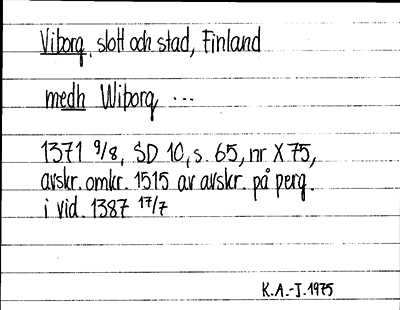 Viborg, slott och stad, Finland
medh Wiborg, ...
1371 9/8, SD 10, s. 65, nr X 75,
avskr. omkr. 1515 av avskr. på perg.
i vid. 1387 17/7
K.A.-J. 1975